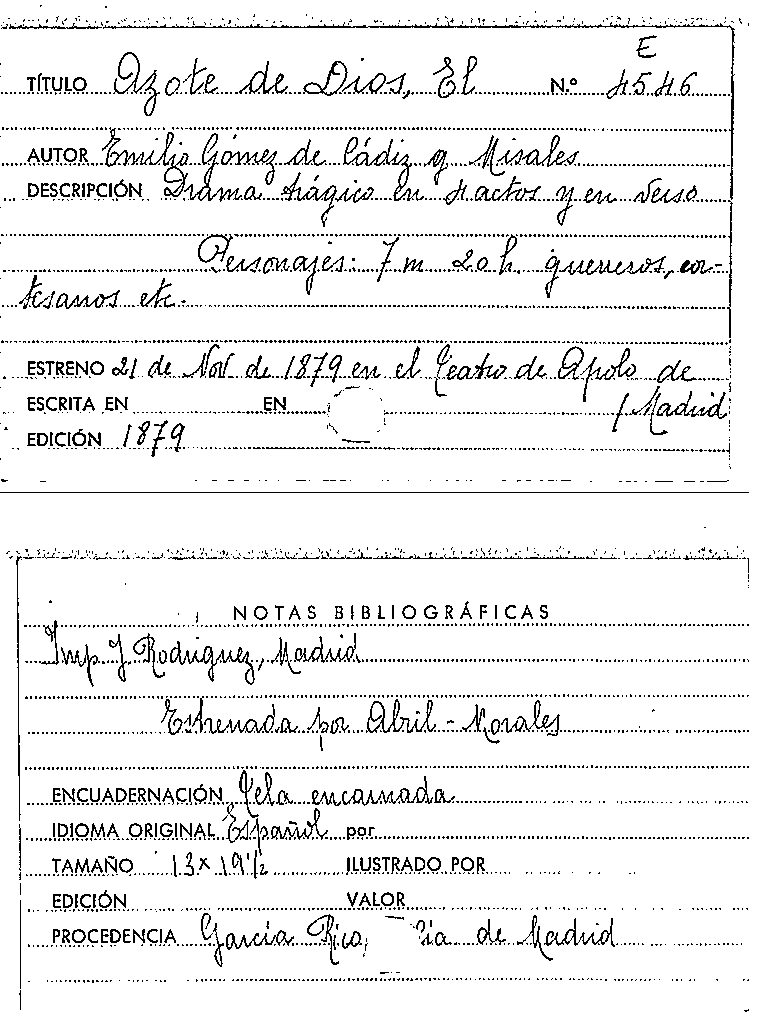 E
TÍTULO Azote de Dios, El N.º 4546
AUTOR Emilio Gómez de Cádiz y Misales
DESCRIPCIÓN Drama trágico en 4 actos y en verso
Personajes: 7 m 20 h. guerreros, cor-
tesanos etc.
ESTRENO 21 de Nov de 1879 en el Teatro de Apolo de
ESCRITA EN EN / Madrid
EDICIÓN 1879
NOTAS BIBLIOGRÁFICAS
Imp J Rodriguez, Madrid
Estrenada por Abril - Morales
ENCUADERNACIÓN Tela encarnada
IDIOMA ORIGINAL Español por
TAMAÑO 13 x 19 1/2 ILUSTRADO POR
EDICIÓN VALOR
PROCEDENCIA García Rico, de Madrid